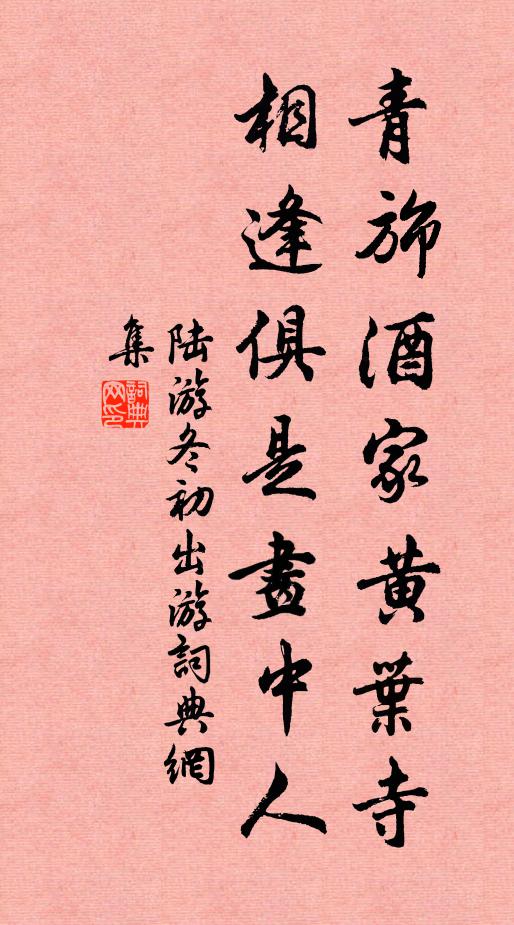 青旆酒家黄葉寺
相逢俱是畫中人
陆游冬初出游詞典網
集
詞典網印